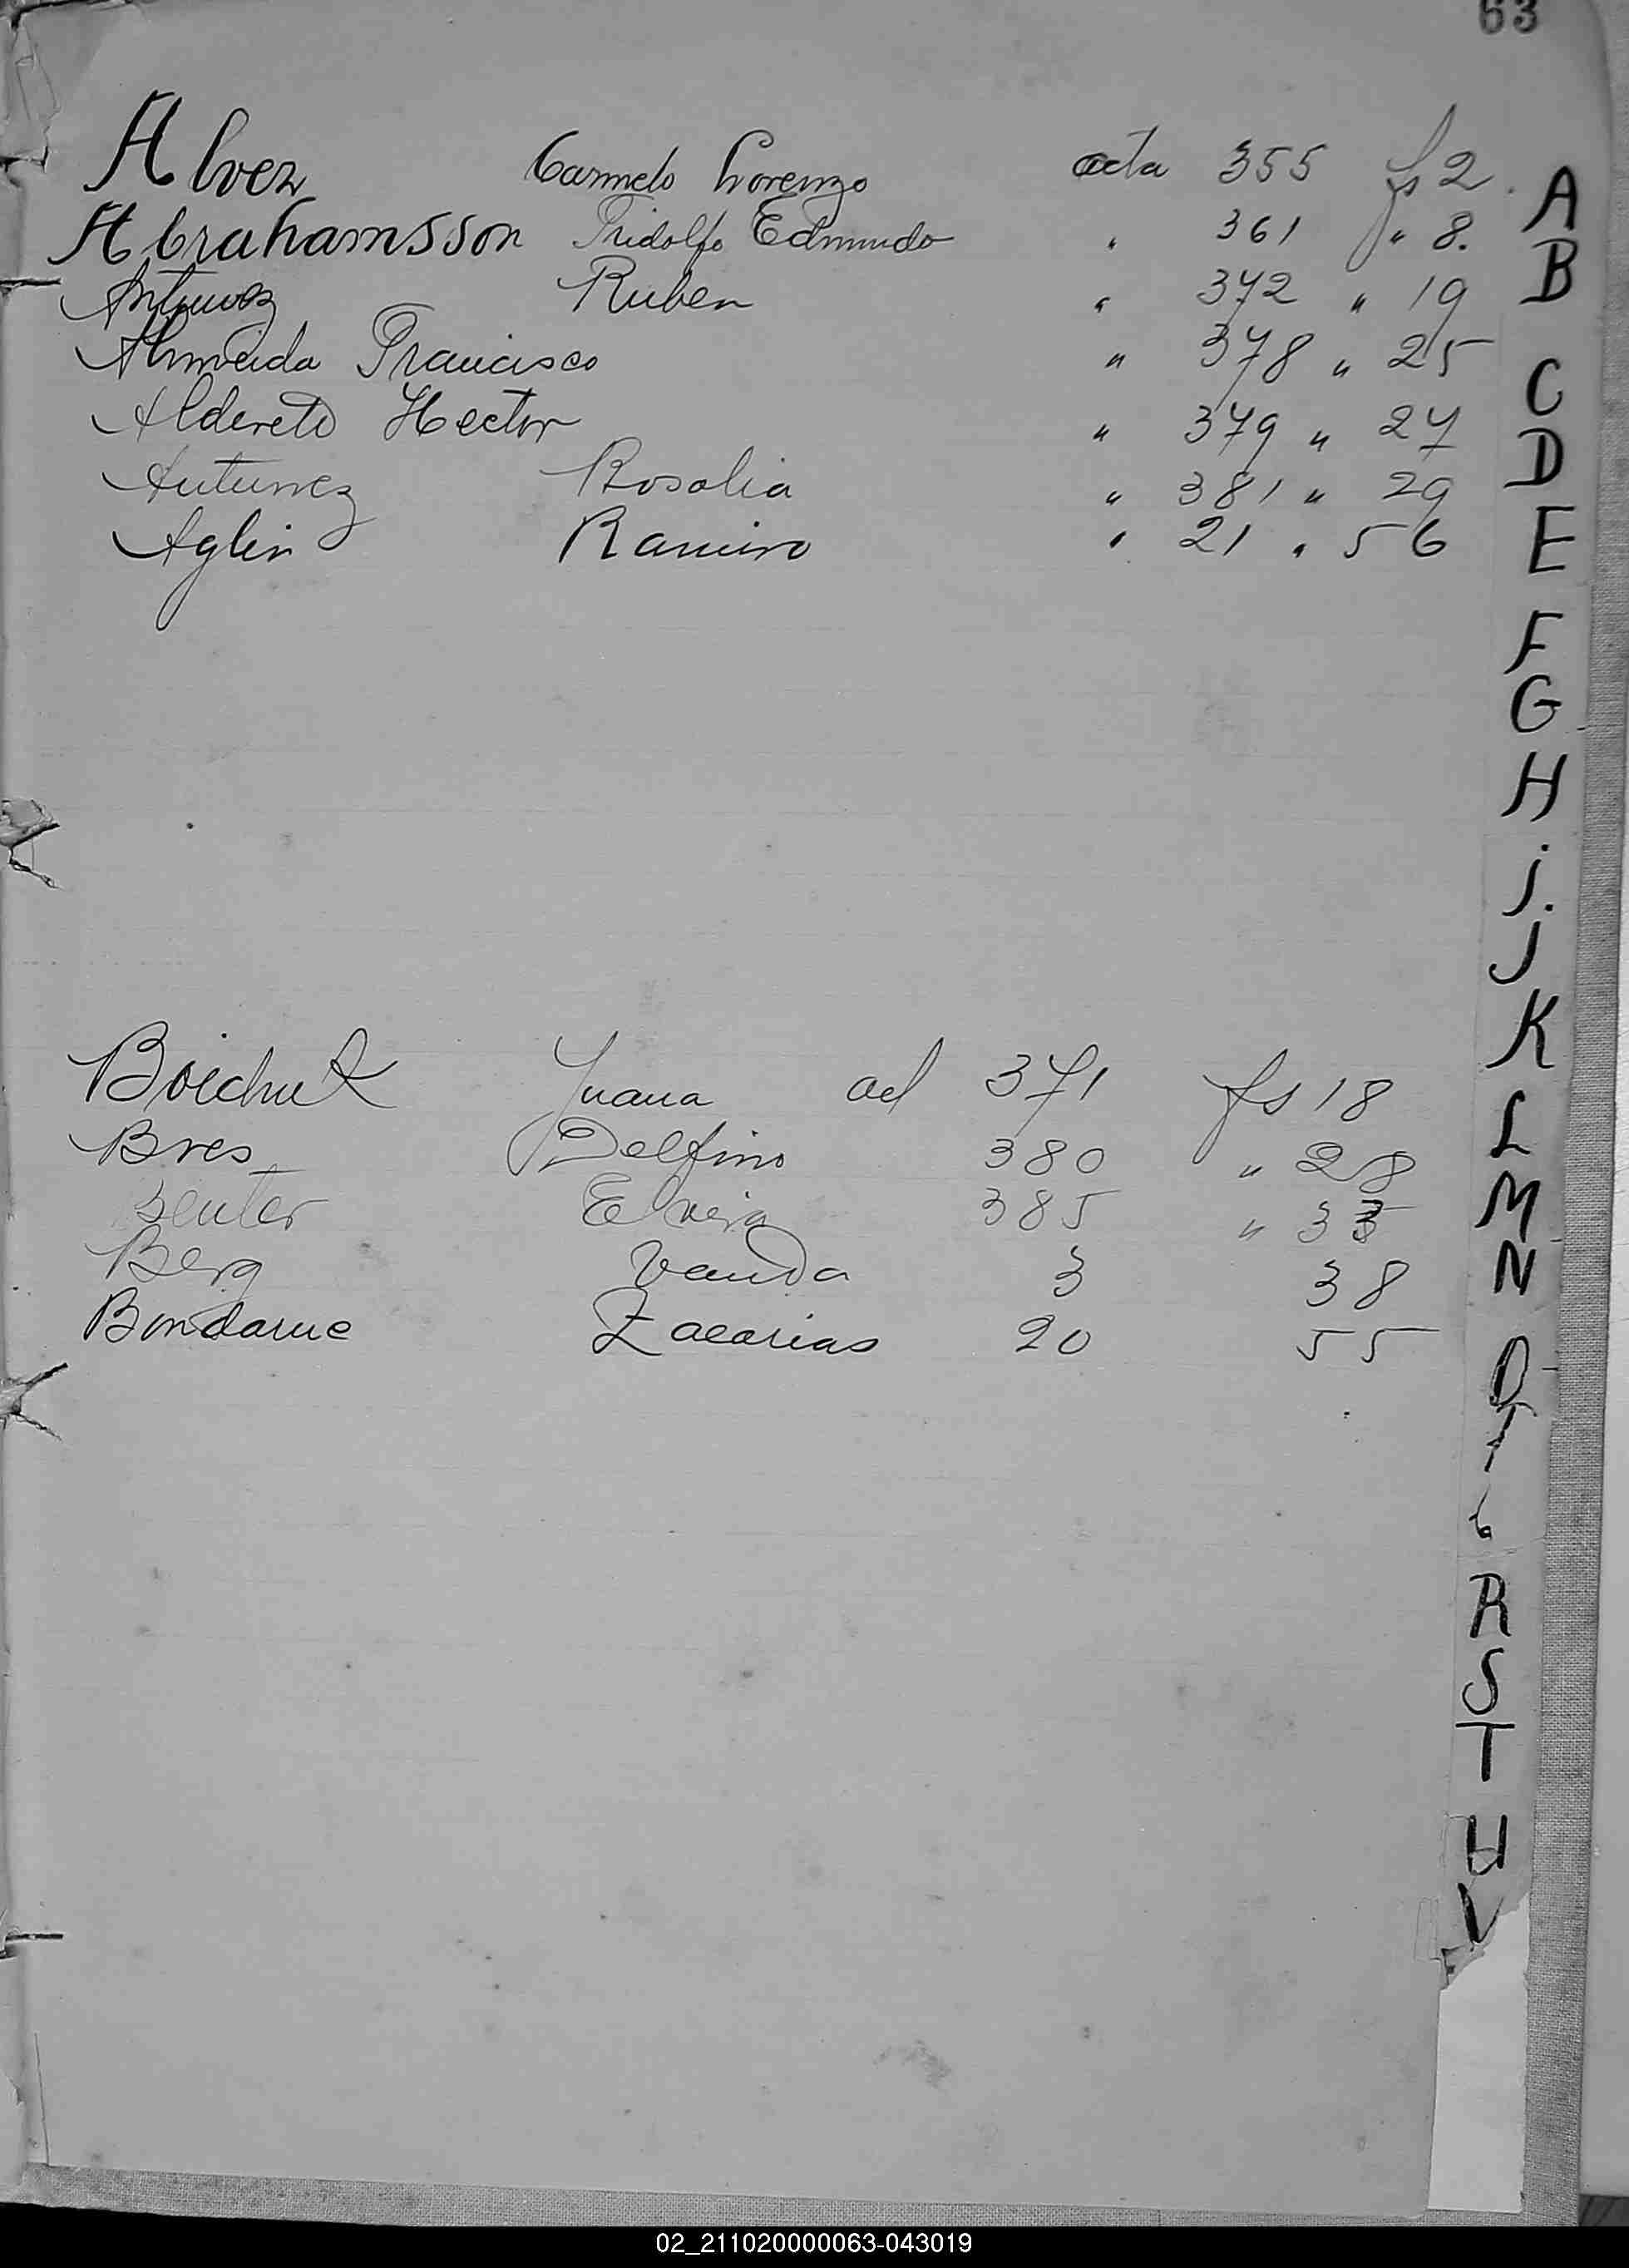 63
Alvez Carmelo Lorenzo acta 355 fs 2.
Abrahamsson Fridolfo Edmundo " 361 " 8.
Antunez Ruben " 372 " 19
Almeida Francisco " 378 " 25
Alderete Hector " 379 " 27
Antunez Rosalia " 381 " 29
Aglin Ramiro " 21 " 56
Boichuk Juana act 371 fs 18
Bres Delfino 380 " 28
Benter Elvira 385 " 33
Berg Vanda 3 38
Bondaruc Zacarias 20 55
A
B
C
D
E
F
G
H
i.
J
K
L
M
N
O
R
S
T
U
V
02_211020000063-043019